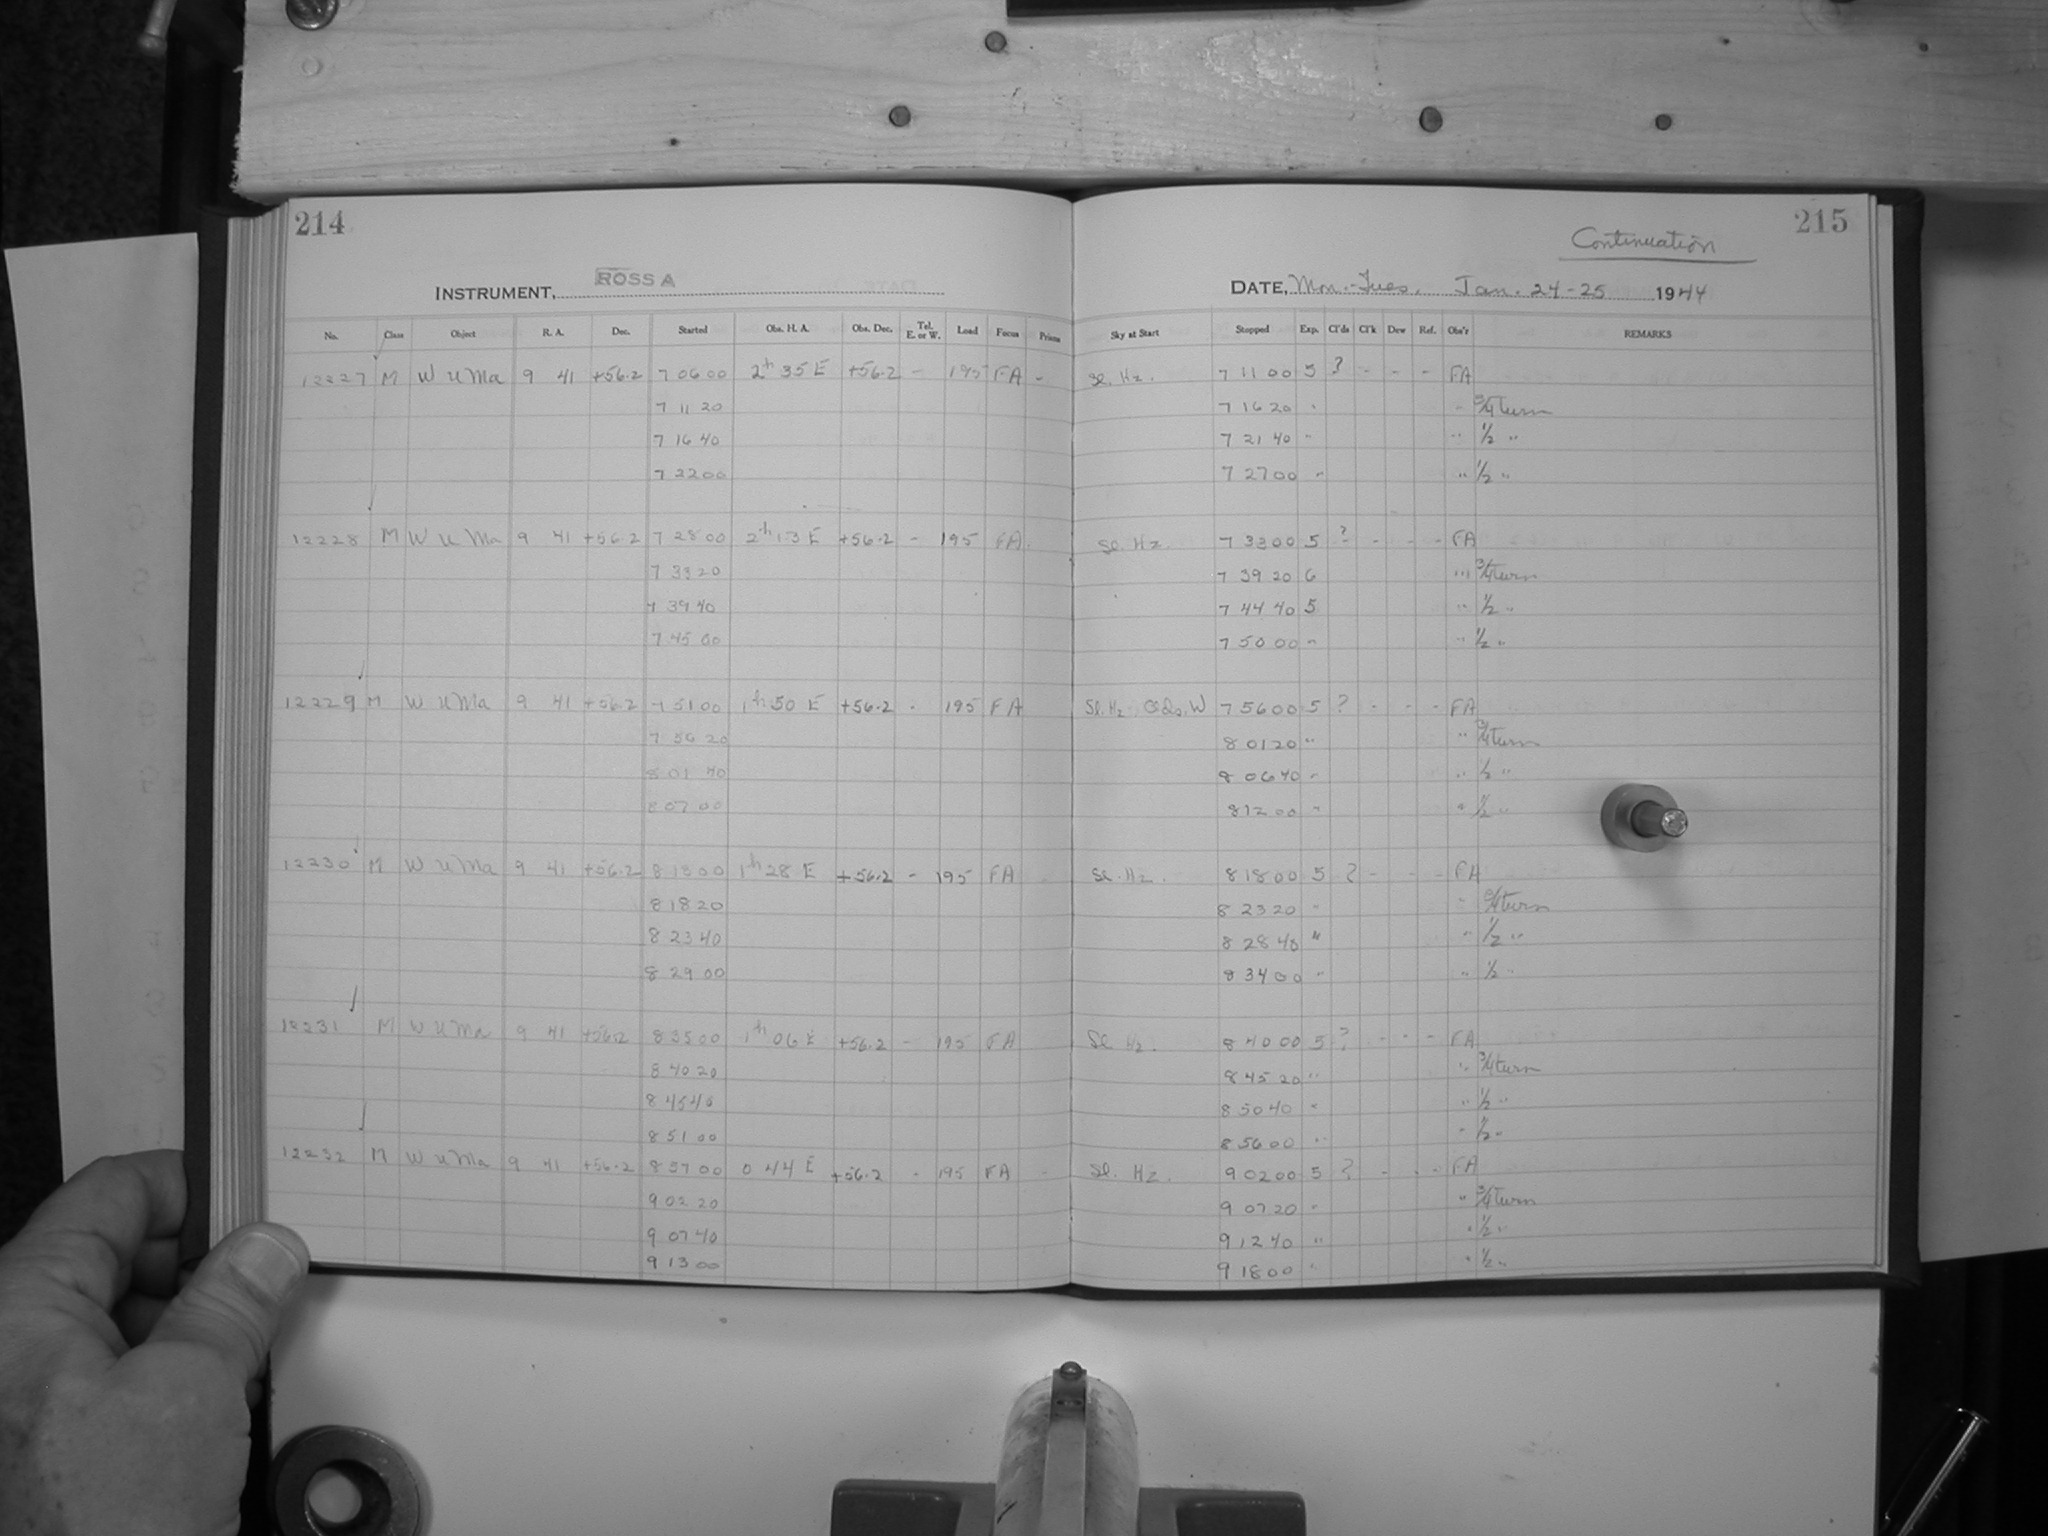 214
INSTRUMENT, ROSS A
No. Class Object R. A. Dec. Started Obs. H. A. Obs. Dec. Tel. E. or W. Load Focus Prisms
12227 M W U Ma 9 41 +56.2 7 06 00 2h 35 E +56.2 - 195 FA -
7 11 20
7 16 40
7 22 00
12228 M W U Ma 9 41 +56.2 7 28 00 2h 13 E +56.2 - 195 FA
7 33 20
7 39 40
7 45 00
12229 M W U Ma 9 41 +56.2 7 51 00 1h 50 E +56.2 - 195 FA
7 56 20
8 01 40
8 07 00
12230 M W U Ma 9 41 +56.2 8 13 00 1h 28 E +56.2 - 195 FA
8 18 20
8 23 40
8 29 00
12231 M W U Ma 9 41 +56.2 8 35 00 1h 06 E +56.2 - 195 FA
8 40 20
8 45 40
8 51 00
12232 M W U Ma 9 41 +56.2 8 57 00 0 44 E +56.2 - 195 FA -
9 02 20
9 07 40
9 13 00
215
Continuation
DATE, Mon.-Tues. Jan. 24-25 1944
Sky at Start Stopped Exp. Cl'ds Cl'k Dew Ref. Obs'r REMARKS
Sl. Hz. 7 11 00 5 ? - - - FA
7 16 20 " " 3/4 turn
7 21 40 " " 1/2 "
7 27 00 " " 1/2 "
Sl. Hz. 7 33 00 5 ? - - - FA
7 39 20 6 " 3/4 turn
7 44 40 5 " 1/2 "
7 50 00 " " 1/2 "
Sl. Hz, Cds. W 7 56 00 5 ? - - - FA
8 01 20 " " 3/4 turn
8 06 40 " " 1/2 "
8 12 00 " " 1/2 "
Sl. Hz. 8 18 00 5 ? - - - FA
8 23 20 " " 3/4 turn
8 28 40 " " 1/2 "
8 34 00 " " 1/2 "
Sl Hz. 8 40 00 5 ? - - - FA
8 45 20 " " 3/4 turn
8 50 40 " " 1/2 "
8 56 00 " " 1/2 "
Sl. Hz. 9 02 00 5 ? - - - FA
9 07 20 " " 3/4 turn
9 12 40 " " 1/2 "
9 18 00 " " 1/2 "